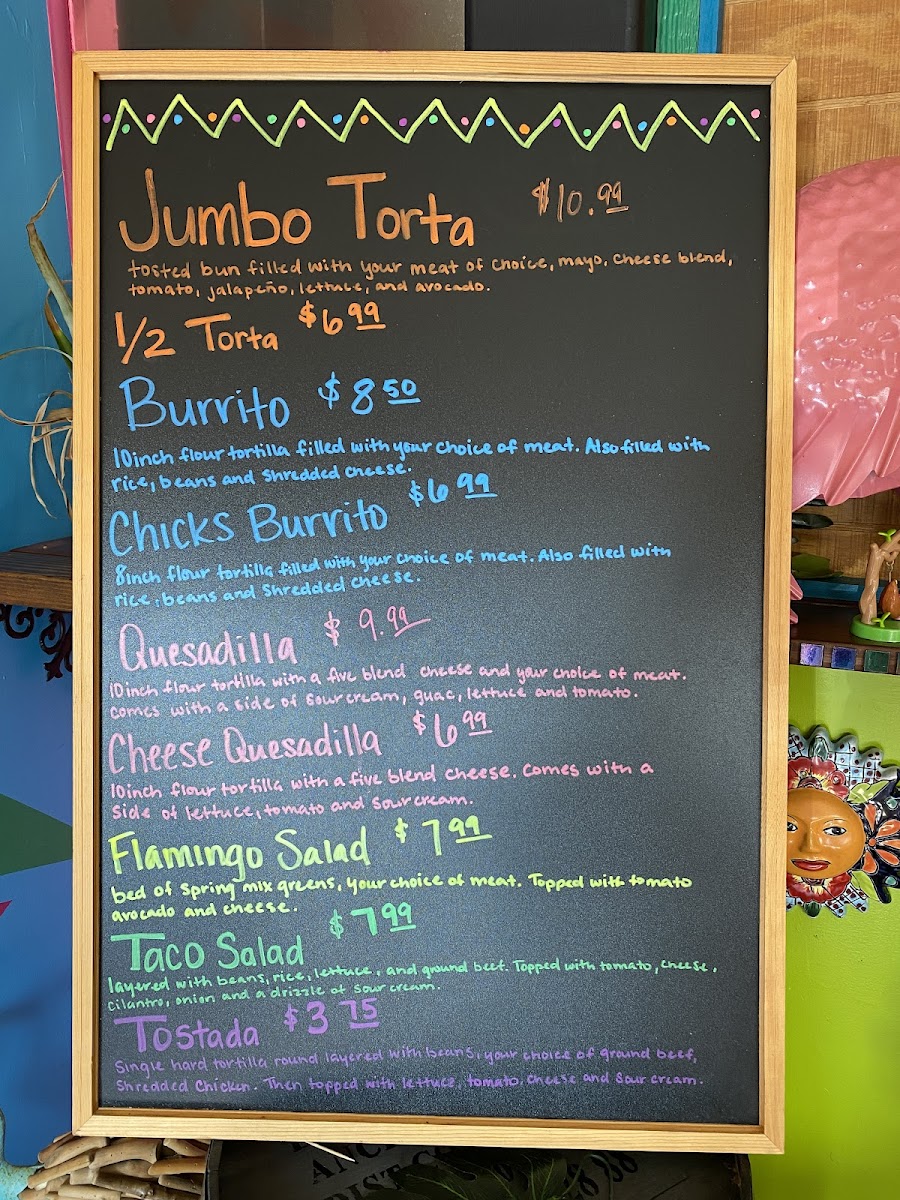 Jumbo Torta $10.99
tosted bun filled with your meat of choice, mayo, cheese blend,
tomato, jalapeño, lettuce, and avocado.
1/2 Torta $6.99
Burrito $8.50
10inch flour tortilla filled with your choice of meat. Also filled with
rice, beans and shredded cheese.
Chicks Burrito $6.99
8inch flour tortilla filled with your choice of meat. Also filled with
rice, beans and shredded cheese.
Quesadilla $9.99
10inch flour tortilla with a five blend cheese and your choice of meat.
Comes with a side of sourcream, guac, lettuce and tomato.
Cheese Quesadilla $6.99
10inch flour tortilla with a five blend cheese. Comes with a
side of lettuce, tomato and sourcream.
Flamingo Salad $7.99
bed of spring mix greens, your choice of meat. Topped with tomato
avocado and cheese.
Taco Salad $7.99
layered with beans, rice, lettuce, and ground beef. Topped with tomato, cheese,
cilantro, onion and a drizzle of sour cream.
Tostada $3.75
Single hard tortilla round layered with beans, your choice of ground beef,
Shredded Chicken. Then topped with lettuce, tomato, cheese and sour cream.